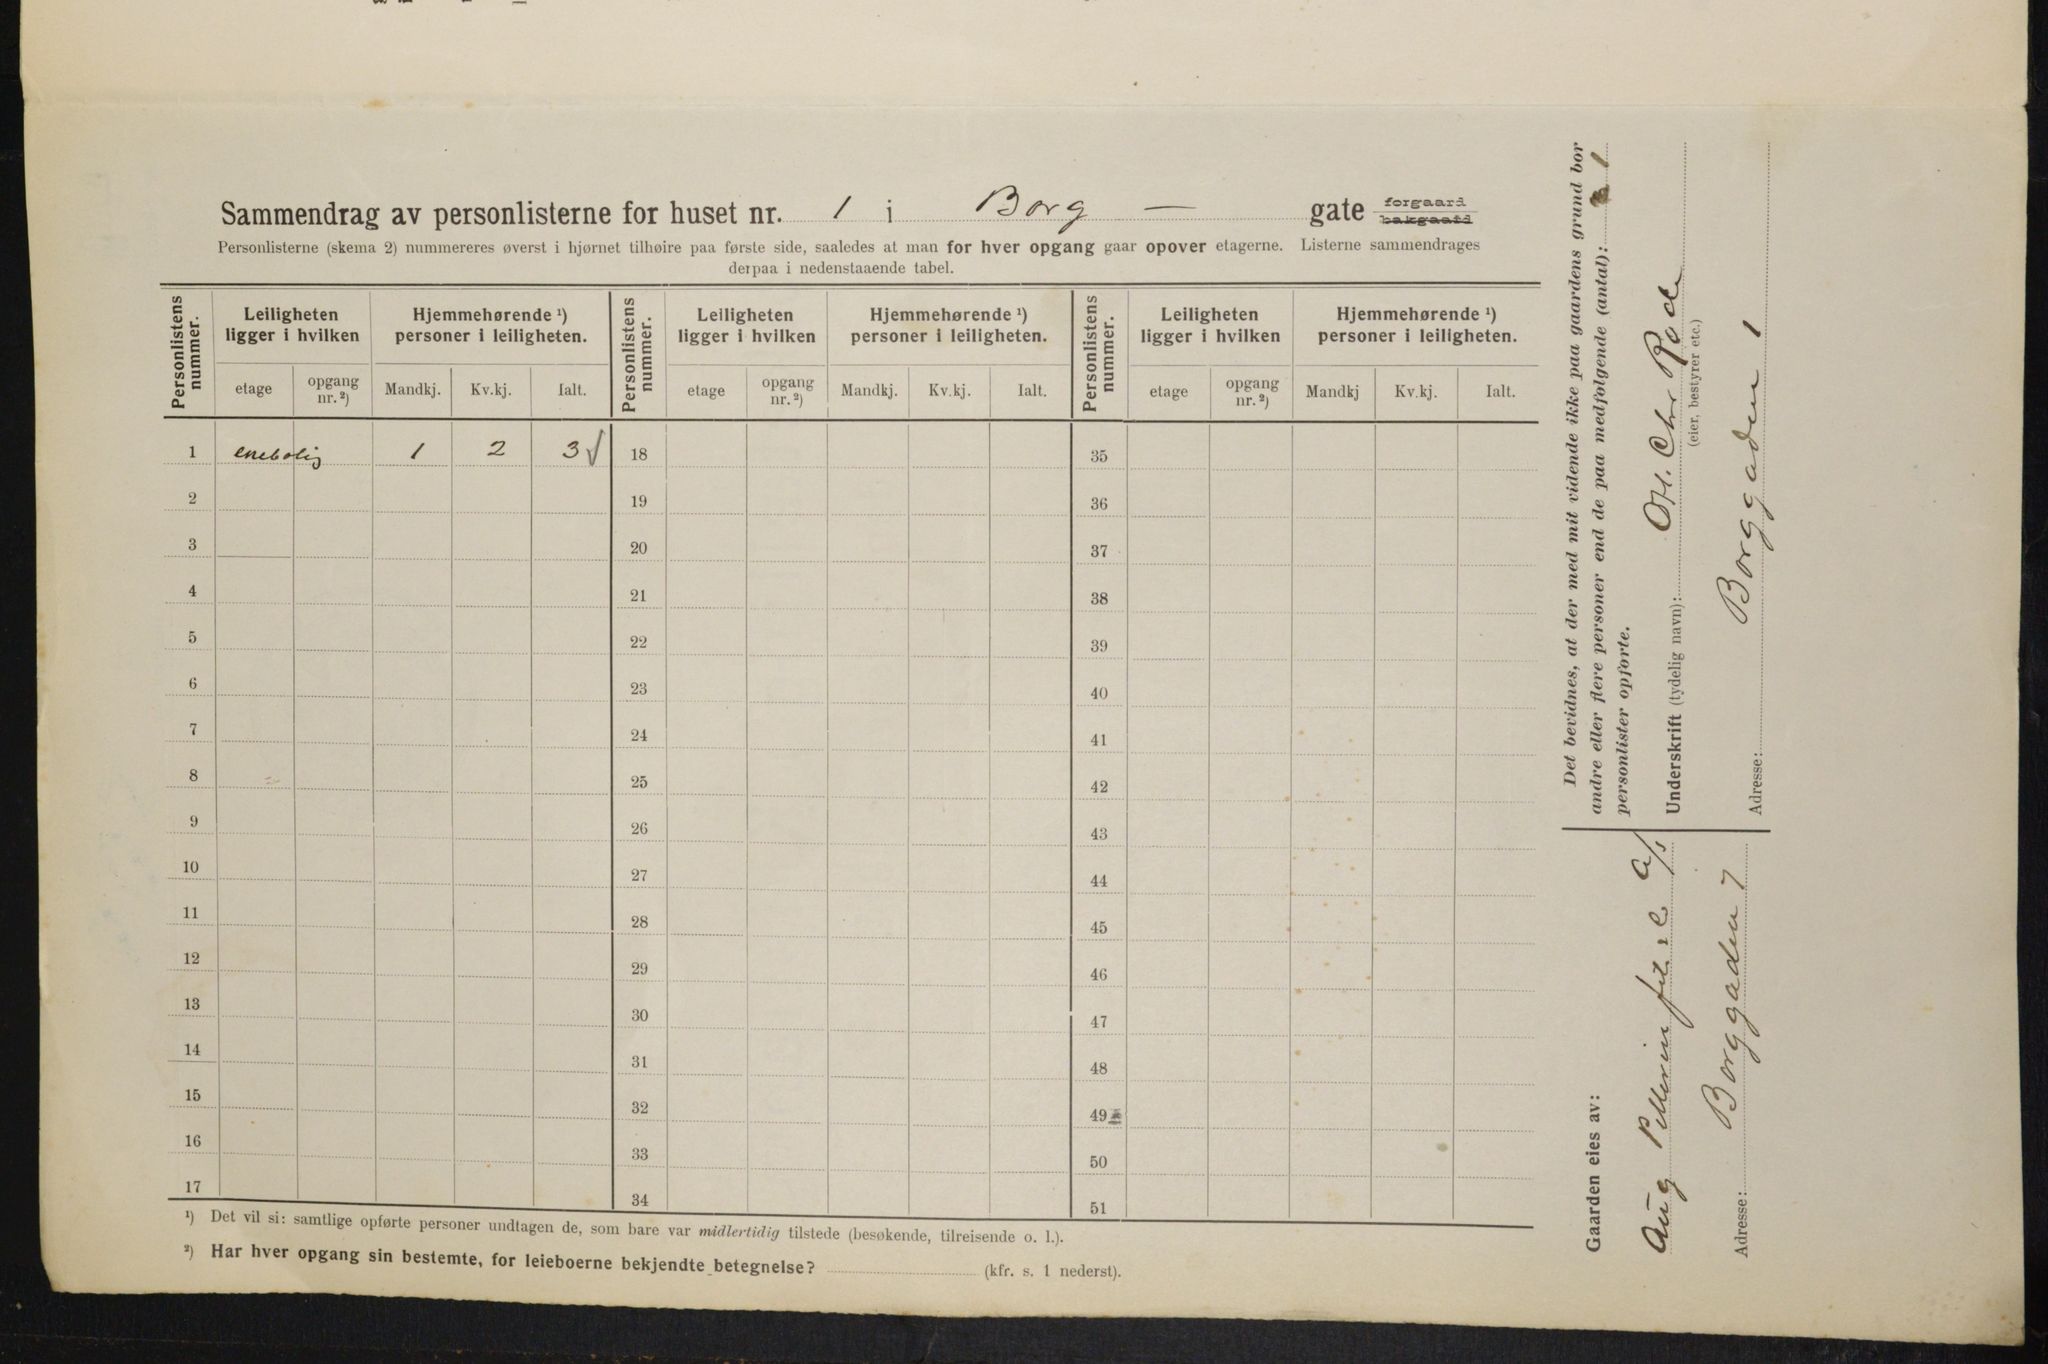 Sammendrag av personlisterne for huset nr. 1 i Borg — gate forgaard bakgaard
Personlisterne (skema 2) nummereres øverst i hjørnet tilhøire paa første side, saaledes at man for hver opgang gaar opover etagerne. Listerne sammendrages
derpaa i nedenstaaende tabel.
Personlistens nummer. Leiligheten ligger i hvilken Hjemmehørende ¹) personer i leiligheten. Personlistens nummer. Leiligheten ligger i hvilken Hjemmehørende ¹) personer i leiligheten. Personlistens nummer. Leiligheten ligger i hvilken Hjemmehørende ¹) personer i leiligheten.
etage opgang nr. ²) Mandkj. Kv.kj. Ialt. etage opgang nr. ²) Mandkj. Kv.kj. Ialt. etage opgang nr. ²) Mandkj Kv.kj. Ialt.
1 enebolig 1 2 3 √ 18 35
2 19 36
3 20 37
4 21 38
5 22 39
6 23 40
7 24 41
8 25 42
9 26 43
10 27 44
11 28 45
12 29 46
13 30 47
14 31 48
15 32 49
16 33 50
17 34 51
¹) Det vil si: samtlige opførte personer undtagen de, som bare var midlertidig tilstede (besøkende, tilreisende o. l.).
²) Har hver opgang sin bestemte, for leieboerne bekjendte betegnelse? (kfr. s. 1 nederst).
Det bevidnes, at der med mit vidende ikke paa gaardens grund bor
andre eller flere personer end de paa medfølgende (antal): 1
personlister opførte.
Underskrift (tydelig navn): Chr Rode
(eier, bestyrer etc.)
Adresse: Borggaden 1
Gaarden eies av:
Aug Pellerin fils & C A/S
Adresse: Borggaden 7